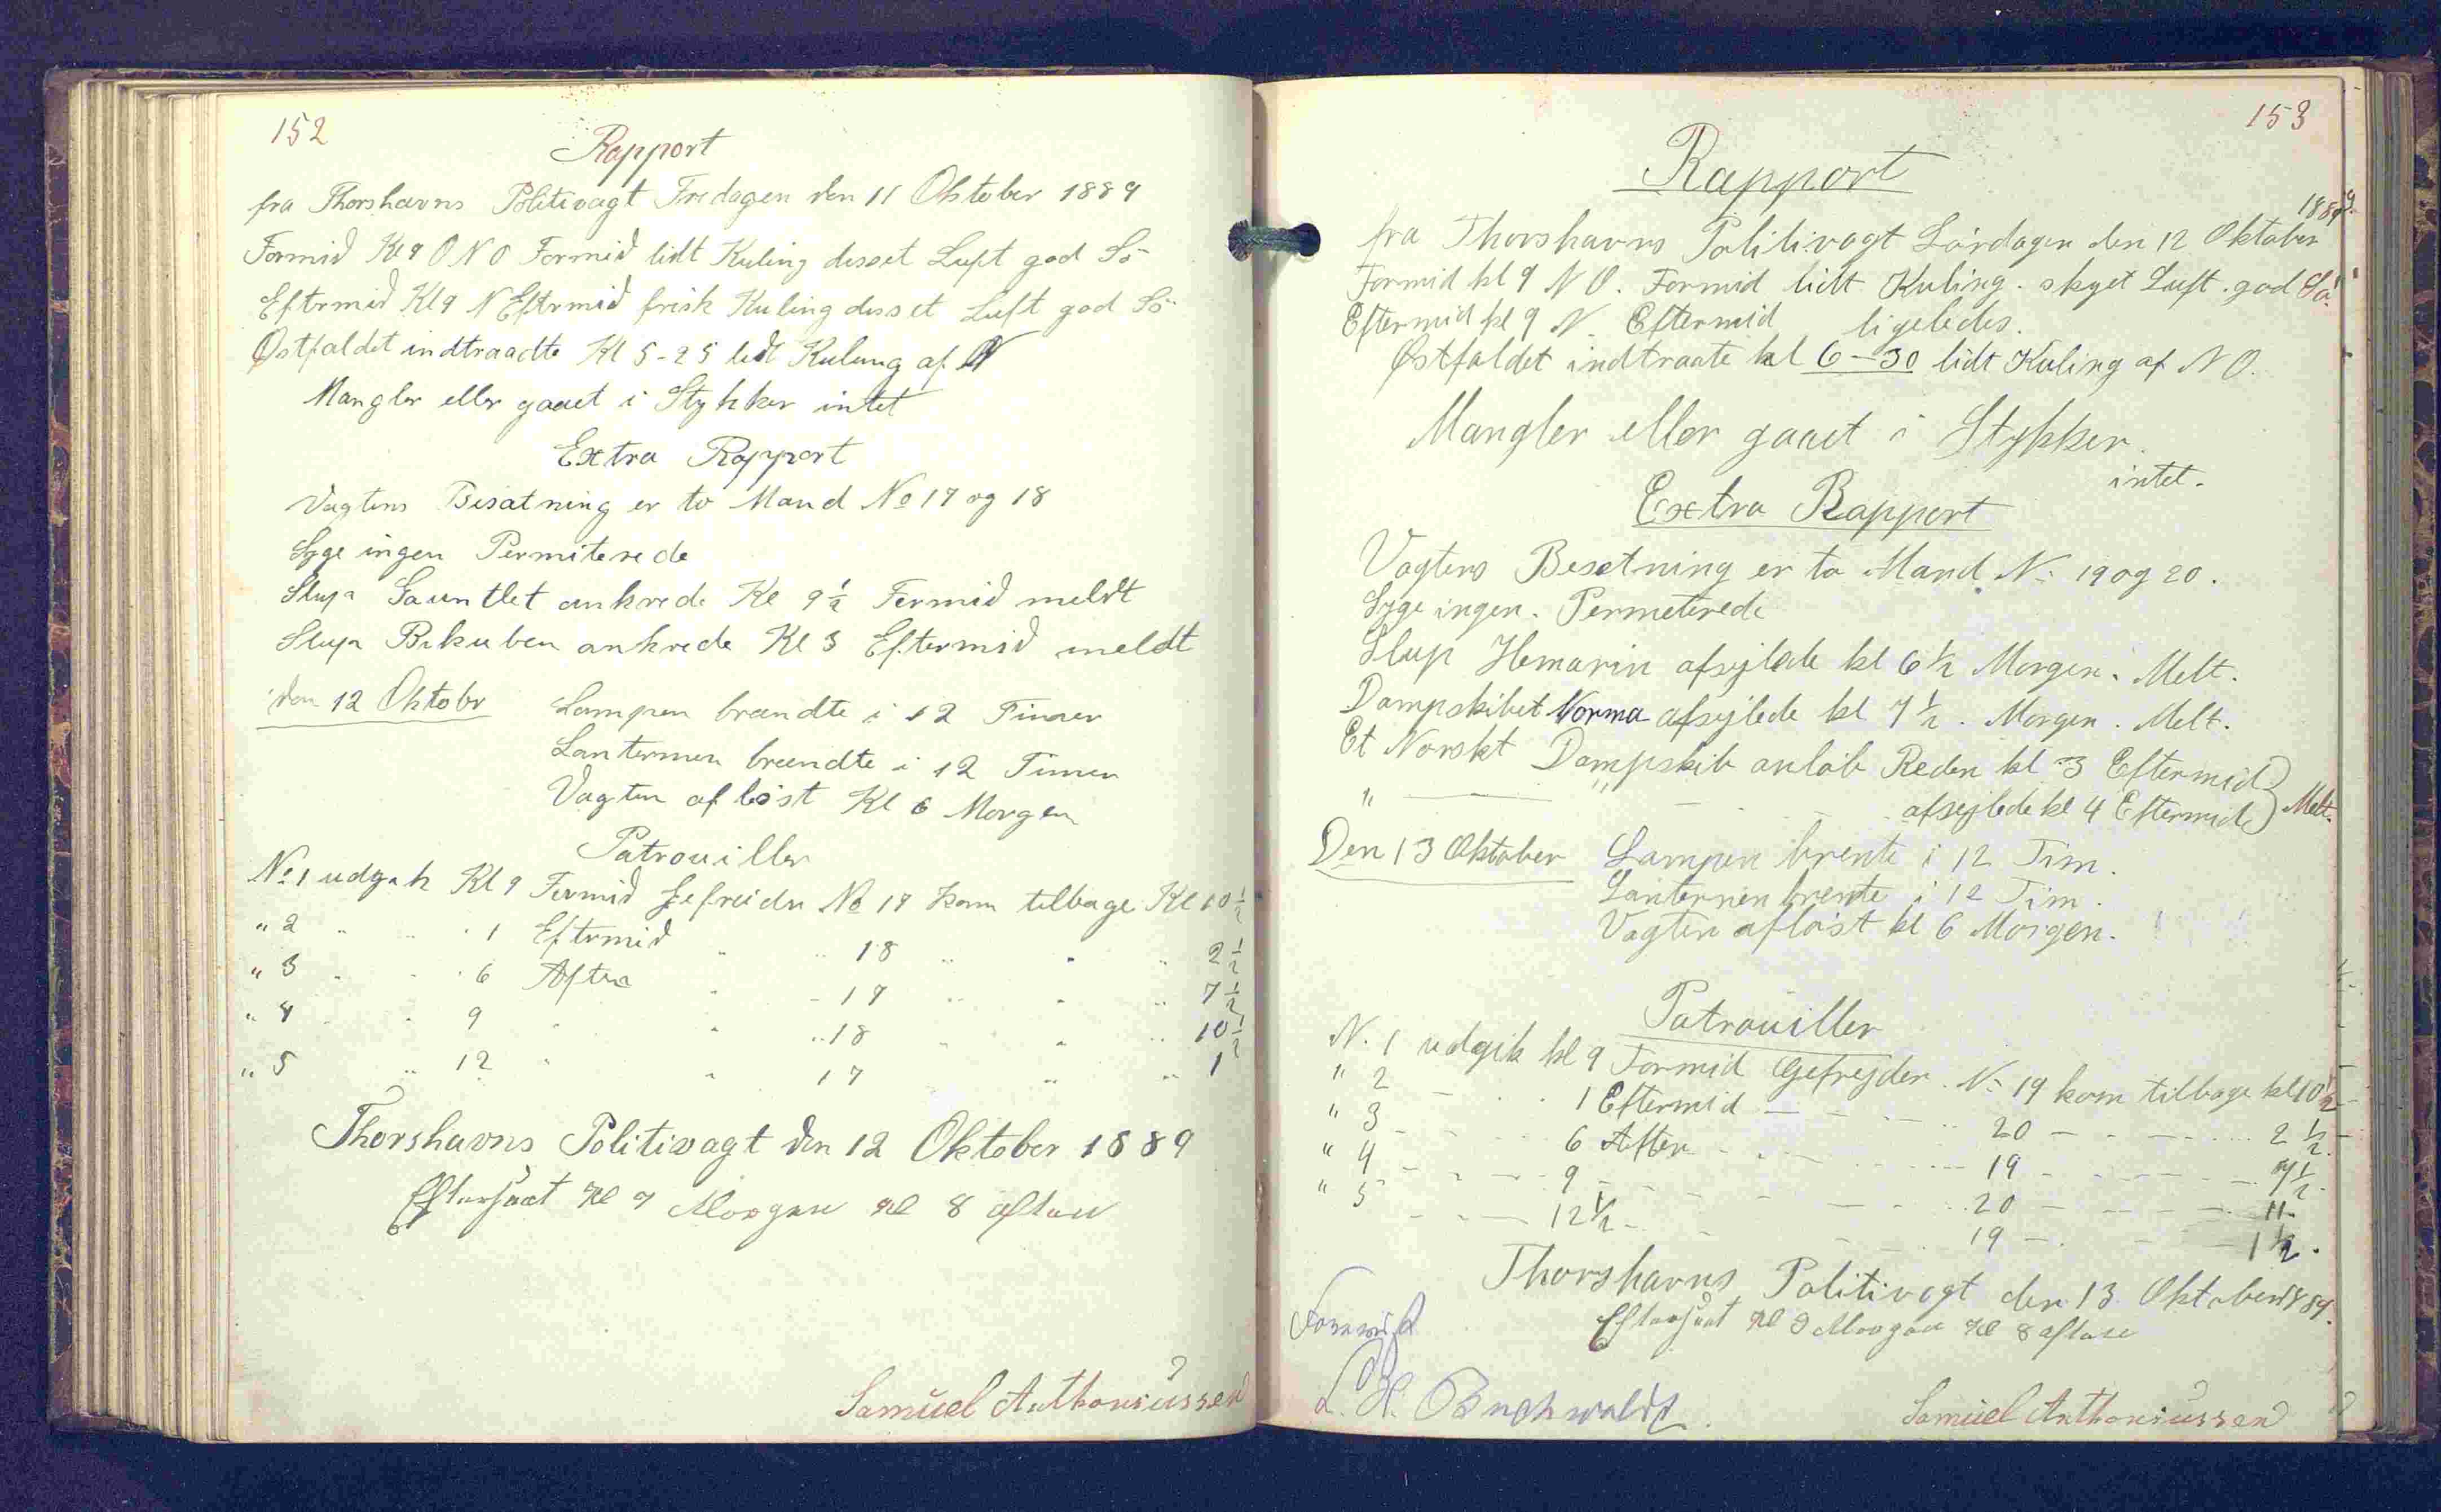 152
Rapport
fra Thorshavns Politivagt Fredagen den 11 Oktober 1889
Formid Kl 9 O N O Formid lidt Kuling disset Luft god Sö
Eftrmid Kl 9 N Eftrmid frisk Kuling disset Luft god Sö
Østfaldet indtraadte Kl 5-25 lidt Kuling af N
Mangler eller gaaet i Stykker intet
Extra Rapport
Vagtens Besatning er to Mand No 17 og 18
Syge ingen Permiterede
Slup Gauntlet ankrede Kl 9 1/2 Formid meldt
Slup Bikuben ankrede Kl 3 Eftermid meldt
den 12 Oktobr Lampen brændte i 12 Timer
Lanternen brændte i 12 Timer
Vagten aflöst Kl 6 Morgen
Patrouiller
No 1 udgik Kl 9 Formid Gefreider No 17 kom tilbage Kl 10 1/2
" 2 " " 1 Eftrmid " " 18 " " " 2 1/2
" 3 " " 6 Aften " " 17 " " " 7 1/2
" 4 " " 9 " " " 18 " " " 10 1/2
" 5 " 12 " " 17 " " 1
Thorshavns Politivagt den 12 Oktober 1889
Efterseet Kl 9 Morgen Kl 8 aften
Samuel Anthoniussen
153
Rapport
fra Thorshavns Politivagt Lördagen den 12 Oktober 1889.
Formid kl 9 N O. Formid lidt Kuling. skyet Luft. god Sö.
Eftermid kl 9 N. Eftermid ligeledes.
Østfaldet indtraate kl 6-30 lidt Kuling af N O.
Mangler eller gaaet i Stykker.
intet.
Extra Rapport
Vagtens Besetning er to Mand N: 19 og 20.
Syge ingen. Permeterede
Slup Hemarin afsejlede kl 6 1/2 Morgen. Melt.
Dampskibet Norma afsejlede kl 7 1/2. Morgen. Melt.
Et Norskt Dampskib anlöb Reden kl 3 Eftermid
" — " — afsejlede kl 4 Eftermid) Melt.
Den 13 Oktober Lampen brente i 12 Tim.
Lanternen brente i 12 Tim.
Vagten aflöst kl 6 Morgen.
Patrouiller
N. 1 udgik kl 9 Formid Gefrejder. N: 19 kom tilbage kl 10 1/2
" 2 - - 1 Eftermid - - 20 - - - 2 1/2
" 3 - - 6 Aften - - 19 - - - 7 1/2.
" 4 - - 9 - - - 20 - - - 11.
" 5 - - 12 1/2 - - - 19 - - - 1 1/2.
Thorshavns Politivagt den 13 Oktober 1889.
Efterseet Kl 9 Morgen Kl 8 aften
L. H. Buchwaldt.
Samuel Anthoniussen